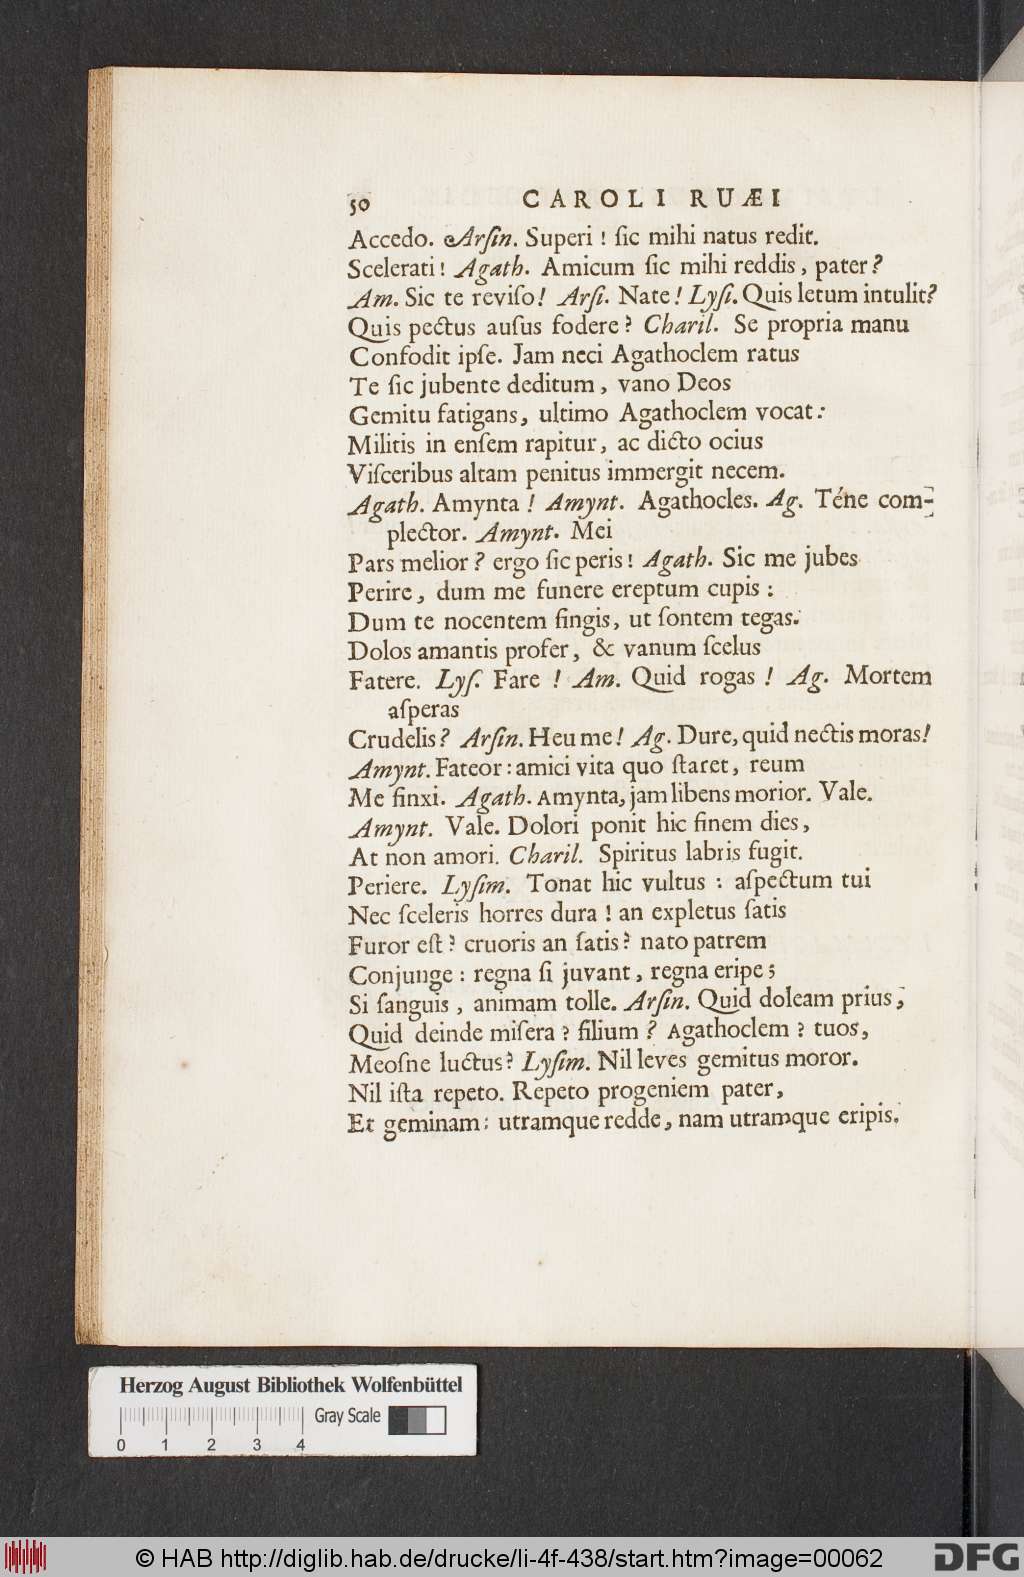 50 CAROLI RUÆI
Accedo. Arſin. Superi ! ſic mihi natus redit.
Scelerati ! Agath. Amicum ſic mihi reddis , pater ?
Am. Sic te reviſo ! Arſi. Nate ! Lyſi. Quis letum intulit?
Quis pectus auſus fodere ? Charil. Se propria manu
Confodit ipſe. Jam neci Agathoclem ratus
Te ſic jubente deditum , vano Deos
Gemitu fatigans, ultimo Agathoclem vocat :
Militis in enſem rapitur, ac dicto ocius
Viſceribus altam penitus immergit necem.
Agath. Amynta ! Amynt. Agathocles. Ag. Téne com-
plector. Amynt. Mei
Pars melior ? ergo ſic peris ! Agath. Sic me jubes
Perire, dum me funere ereptum cupis :
Dum te nocentem fingis, ut ſontem tegas.
Dolos amantis profer, & vanum ſcelus
Fatere. Lyſ. Fare ! Am. Quid rogas ! Ag. Mortem
aſperas
Crudelis ? Arſin. Heu me ! Ag. Dure, quid nectis moras !
Amynt. Fateor : amici vita quo ſtaret, reum
Me finxi. Agath. Amynta, jam libens morior. Vale.
Amynt. Vale. Dolori ponit hic finem dies,
At non amori. Charil. Spiritus labris fugit.
Periere. Lyſim. Tonat hic vultus : aſpectum tui
Nec ſceleris horres dura ! an expletus ſatis
Furor eſt ? cruoris an ſatis ? nato patrem
Conjunge : regna ſi juvant, regna eripe ;
Si ſanguis , animam tolle. Arſin. Quid doleam prius ,
Quid deinde miſera ? filium ? Agathoclem ? tuos,
Meoſne luctus ? Lyſim. Nil leves gemitus moror.
Nil iſta repeto. Repeto progeniem pater,
Et geminam : utramque redde, nam utramque eripis.
Herzog August Bibliothek Wolfenbüttel
Gray Scale
0 1 2 3 4
© HAB http://diglib.hab.de/drucke/li-4f-438/start.htm?image=00062
DFG